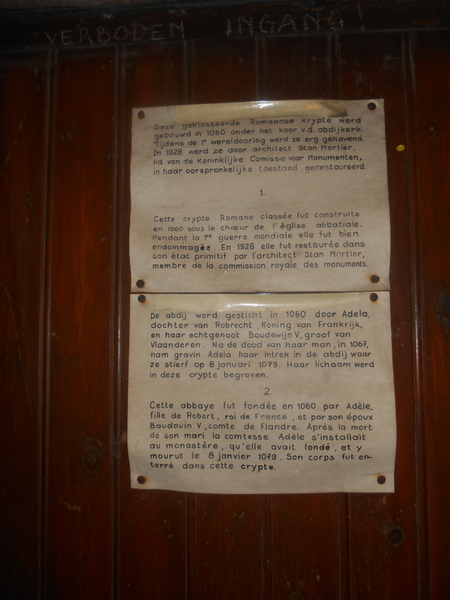 VERBODEN INGANG!
Deze geklasseerde Romaanse krypte werd
gebouwd in 1060 onder het koor v.d. abdijkerk.
Tijdens de 1e wereldoorlog werd ze erg gehavend.
In 1928 werd ze door architect Stan Mortier,
lid van de Koninklijke Comissie voor Monumenten,
in haar oorspronkelijke toestand gerestaureerd.
1.
Cette crypte Romane classée fut construite
en 1060 sous le chœur de l'église abbatiale.
Pendant la 1re guerre mondiale elle fut bien
endommagée. En 1928 elle fut restaurée dans
son état primitif par l'architect Stan Mortier,
membre de la commission royale des monuments.
De abdij werd gesticht in 1060 door Adela,
dochter van Robrecht, Koning van Frankrijk,
en haar echtgenoot Boudewijn V, graaf van
Vlaanderen. Na de dood van haar man, in 1067,
nam gravin Adela haar intrek in de abdij waar
ze stierf op 8 januari 1079. Haar lichaam werd
in deze crypte begraven.
2.
Cette abbaye fut fondée en 1060 par Adèle,
fille de Robert, roi de France, et par son époux
Baudouin V, comte de Flandre. Après la mort
de son mari la comtesse Adèle s'installait
au monastère, qu'elle avait fondé, et y
mourut le 8 janvier 1079. Son corps fut en-
terré dans cette crypte.